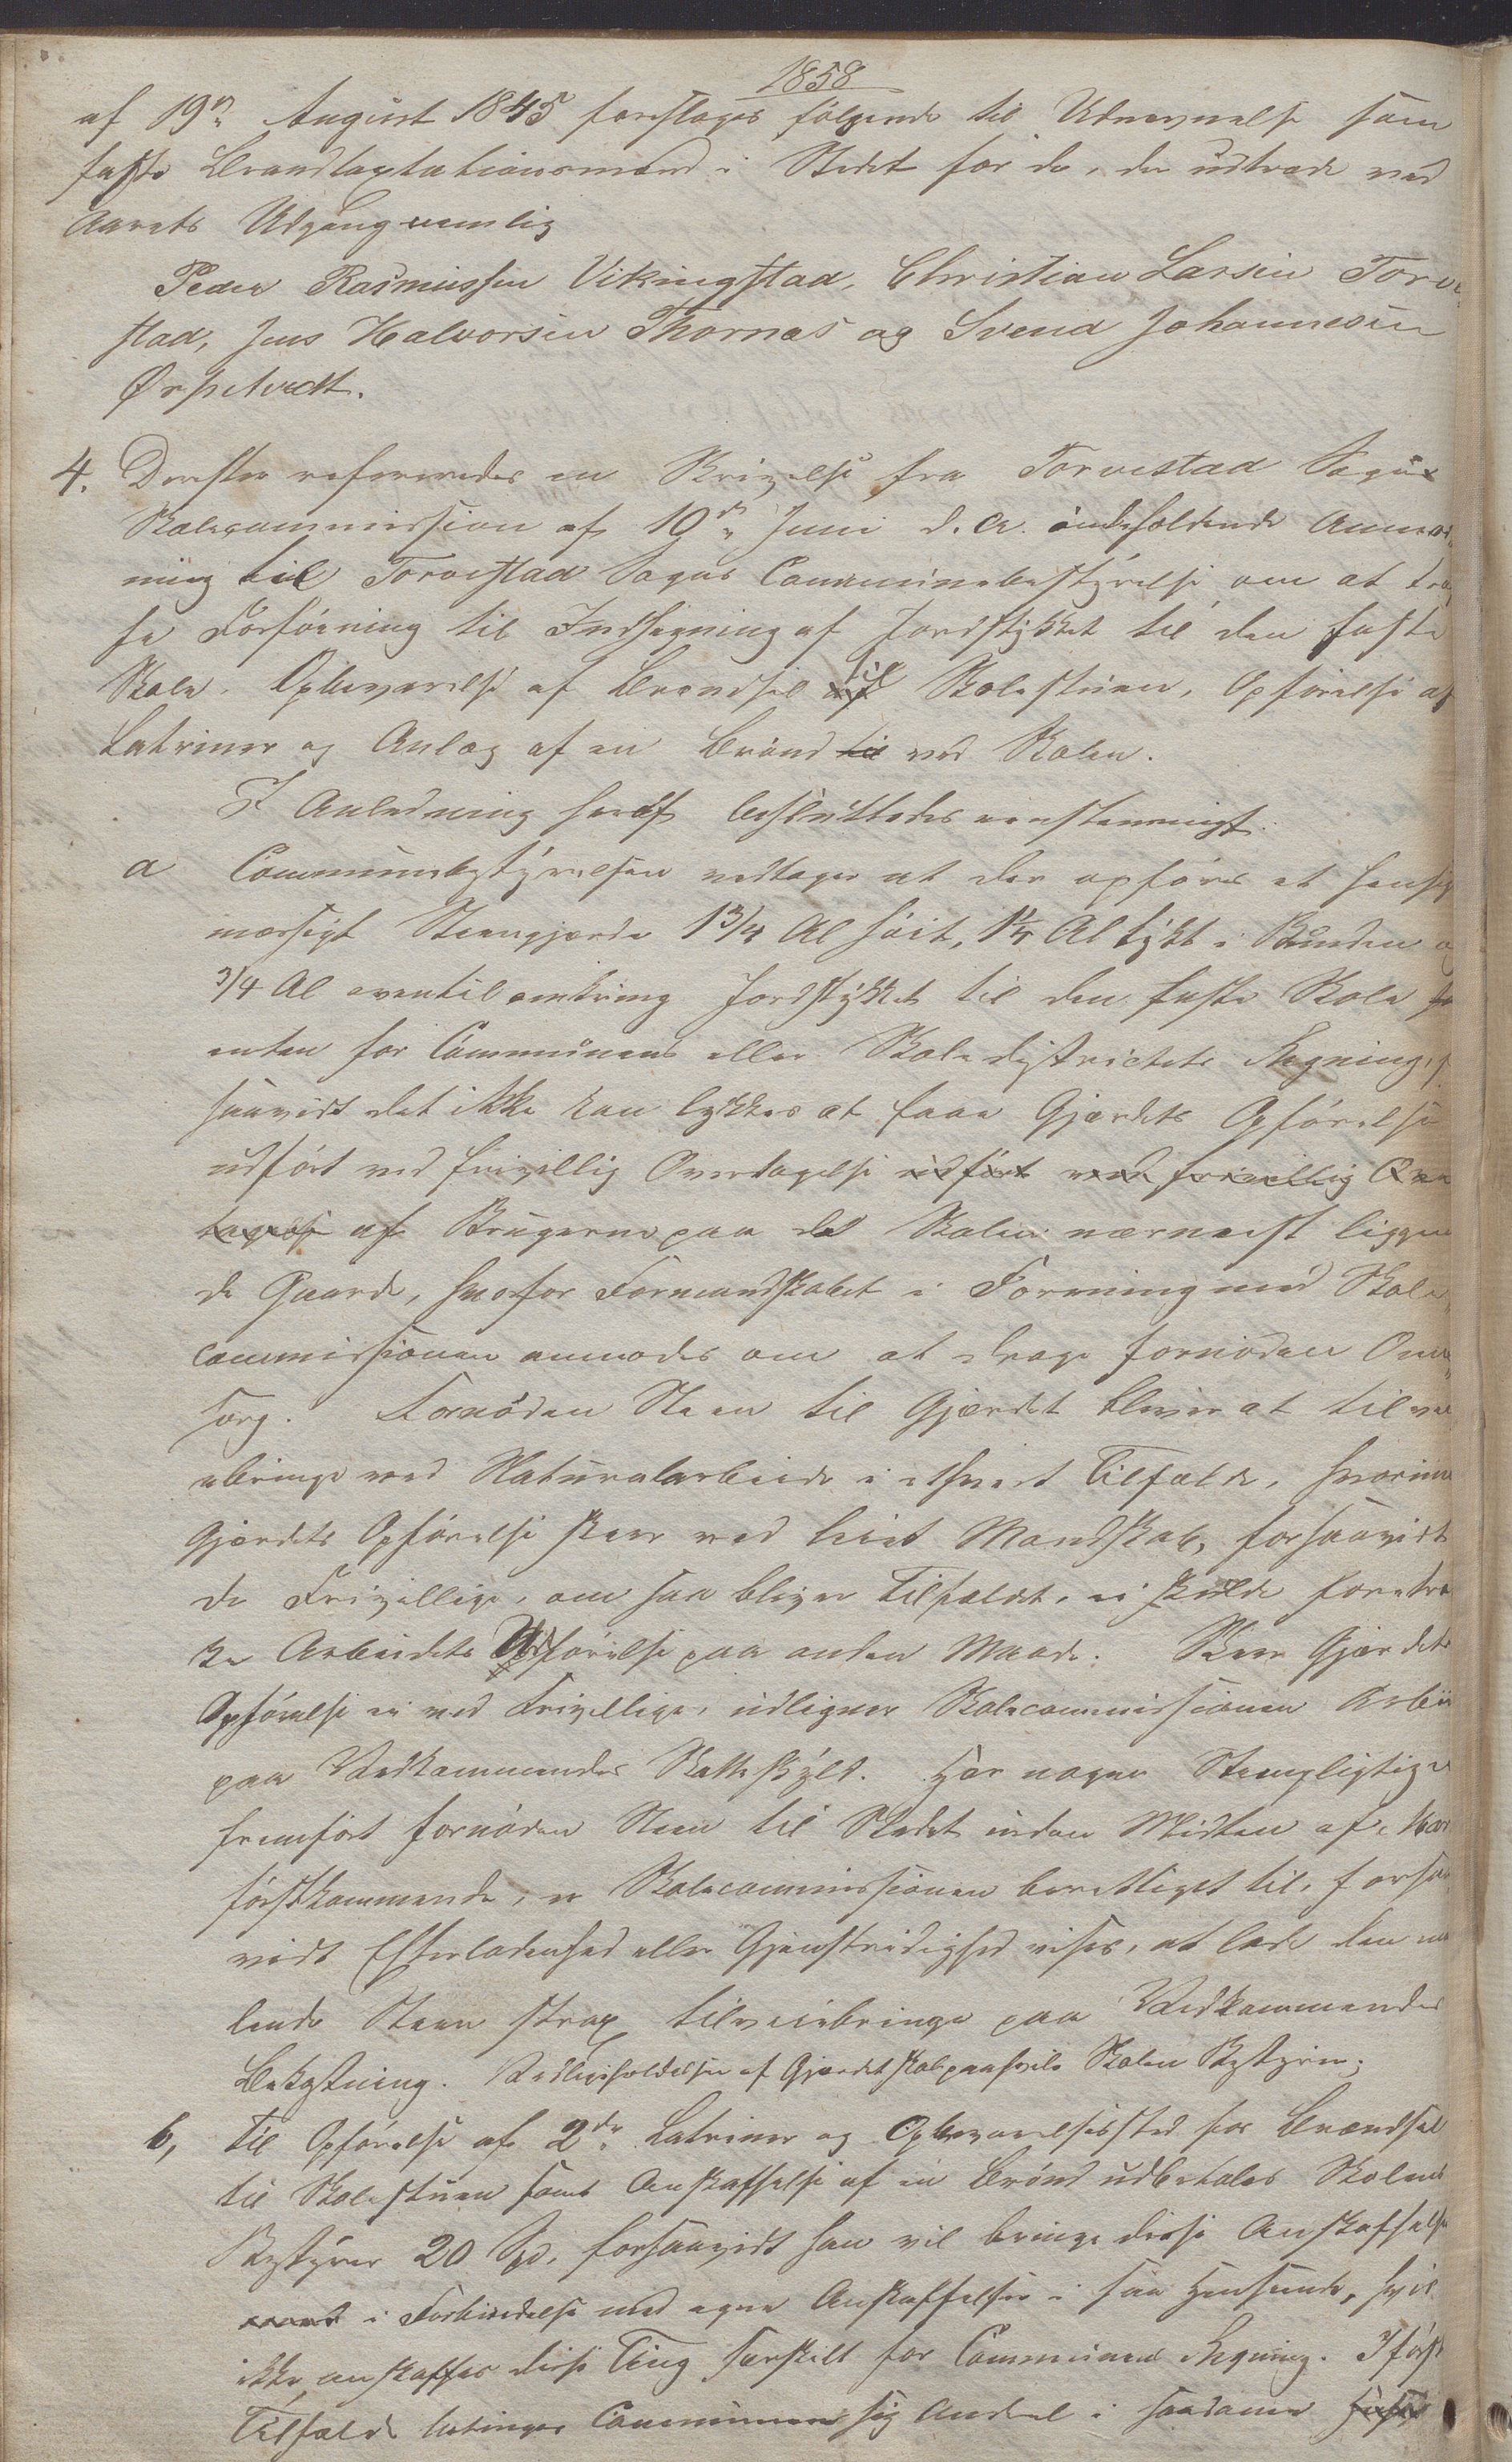 1858
af 19de August 1845 foreslages følgende til Udnævnelse som
faste Brandtaxtationsmænd i Stedet for de, der udtræde ved
Aarets Udgang nemlig
Peder Rasmussen Vikingstad, Christian Larsen Torve-
stad, Jens Halvorsen Thornæs og Svend Johannesen
Ørpetvedt.
4. Derefter refereredes en Skrivelse fra Torvestad Sogns
Skolecommission af 10de Juni d.A. indeholdende Anmod-
ning til Torvestad Sogns Communebestyrelse om at træf
fe Forføining til Indhegning af Jordstykket til den faste
Skole, Opbevarelse af Brændsel til Skolestuen, Opførelse af
Latriner og Anlæg af en Brønd til ved Skolen.
I Anledning heraf besluttedes eenstemmigt:
a Communebestyrelsen vedtager at der opføres et hensigts
mæssigt Steengjærde 1 3/4 Al høit, 1 1/4 Al tykt i Bunden og
3/4 Al oventil omkring Jordstykket til den faste Skole
enten for Communens eller Skoledistrictets Regning, for
saavidt det ikke kan lykkes at faae Gjærdets Opførelse
udført ved frivillig Overtagelse udført ved frivillig Over
tagelse af Brugerne paa de Skolen nærmest liggen
de Gaarde, hvorfor Formandskabet i Forening med Skole
commissionen anmodes om at drage fornøden Om
sorg. Fornøden Steen til Gjærdet bliver at tilvei
ebringe ved Naturalarbeide i ethvert Tilfælde, hvori
Gjærdets Opførelse skeer ved leiet Mandskab, forsaavidt
de Frivillige, om saa bliver Tilfældet, ei skulde foretræ
kke Arbeidets Udførelse paa anden Maade. Skeer Gjærdets
Opførelse ei ved Frivillige, udligner Skolecommissionen Arbei
paa Vedkommendes Matrikulskyld. Har nogen Steenpligtig ei
fremført fornøden Steen til Stedet inden Midten af Mar
førstkommende, er Skolecommissionen berettiget til, forsaa
vidt Efterladenhed eller Gjenstridighed vises, at lade den
lende Steen strax tilveiebringe paa Vedkommendes
Bekostning. Vedligeholdelsen af Gjærdet skal paahvile Skolen Bestyrer.
b, Til Opførelse af 2de Latriner og Opbevarelsessted for Brændsel
til Skolestuen samt Anskaffelse af en Brønd udbetales Skolens
Bestyrer 20 Spd, forsaavidt han vil bringe disse Anskaffelser
i Forbindelse med egne Anskaffelser i saa Henseende, hvis
ikke anskaffes disse Ting særskilt for Communens Regning. I først
Tilfælde betinger Communen sig Andeel i saadanne